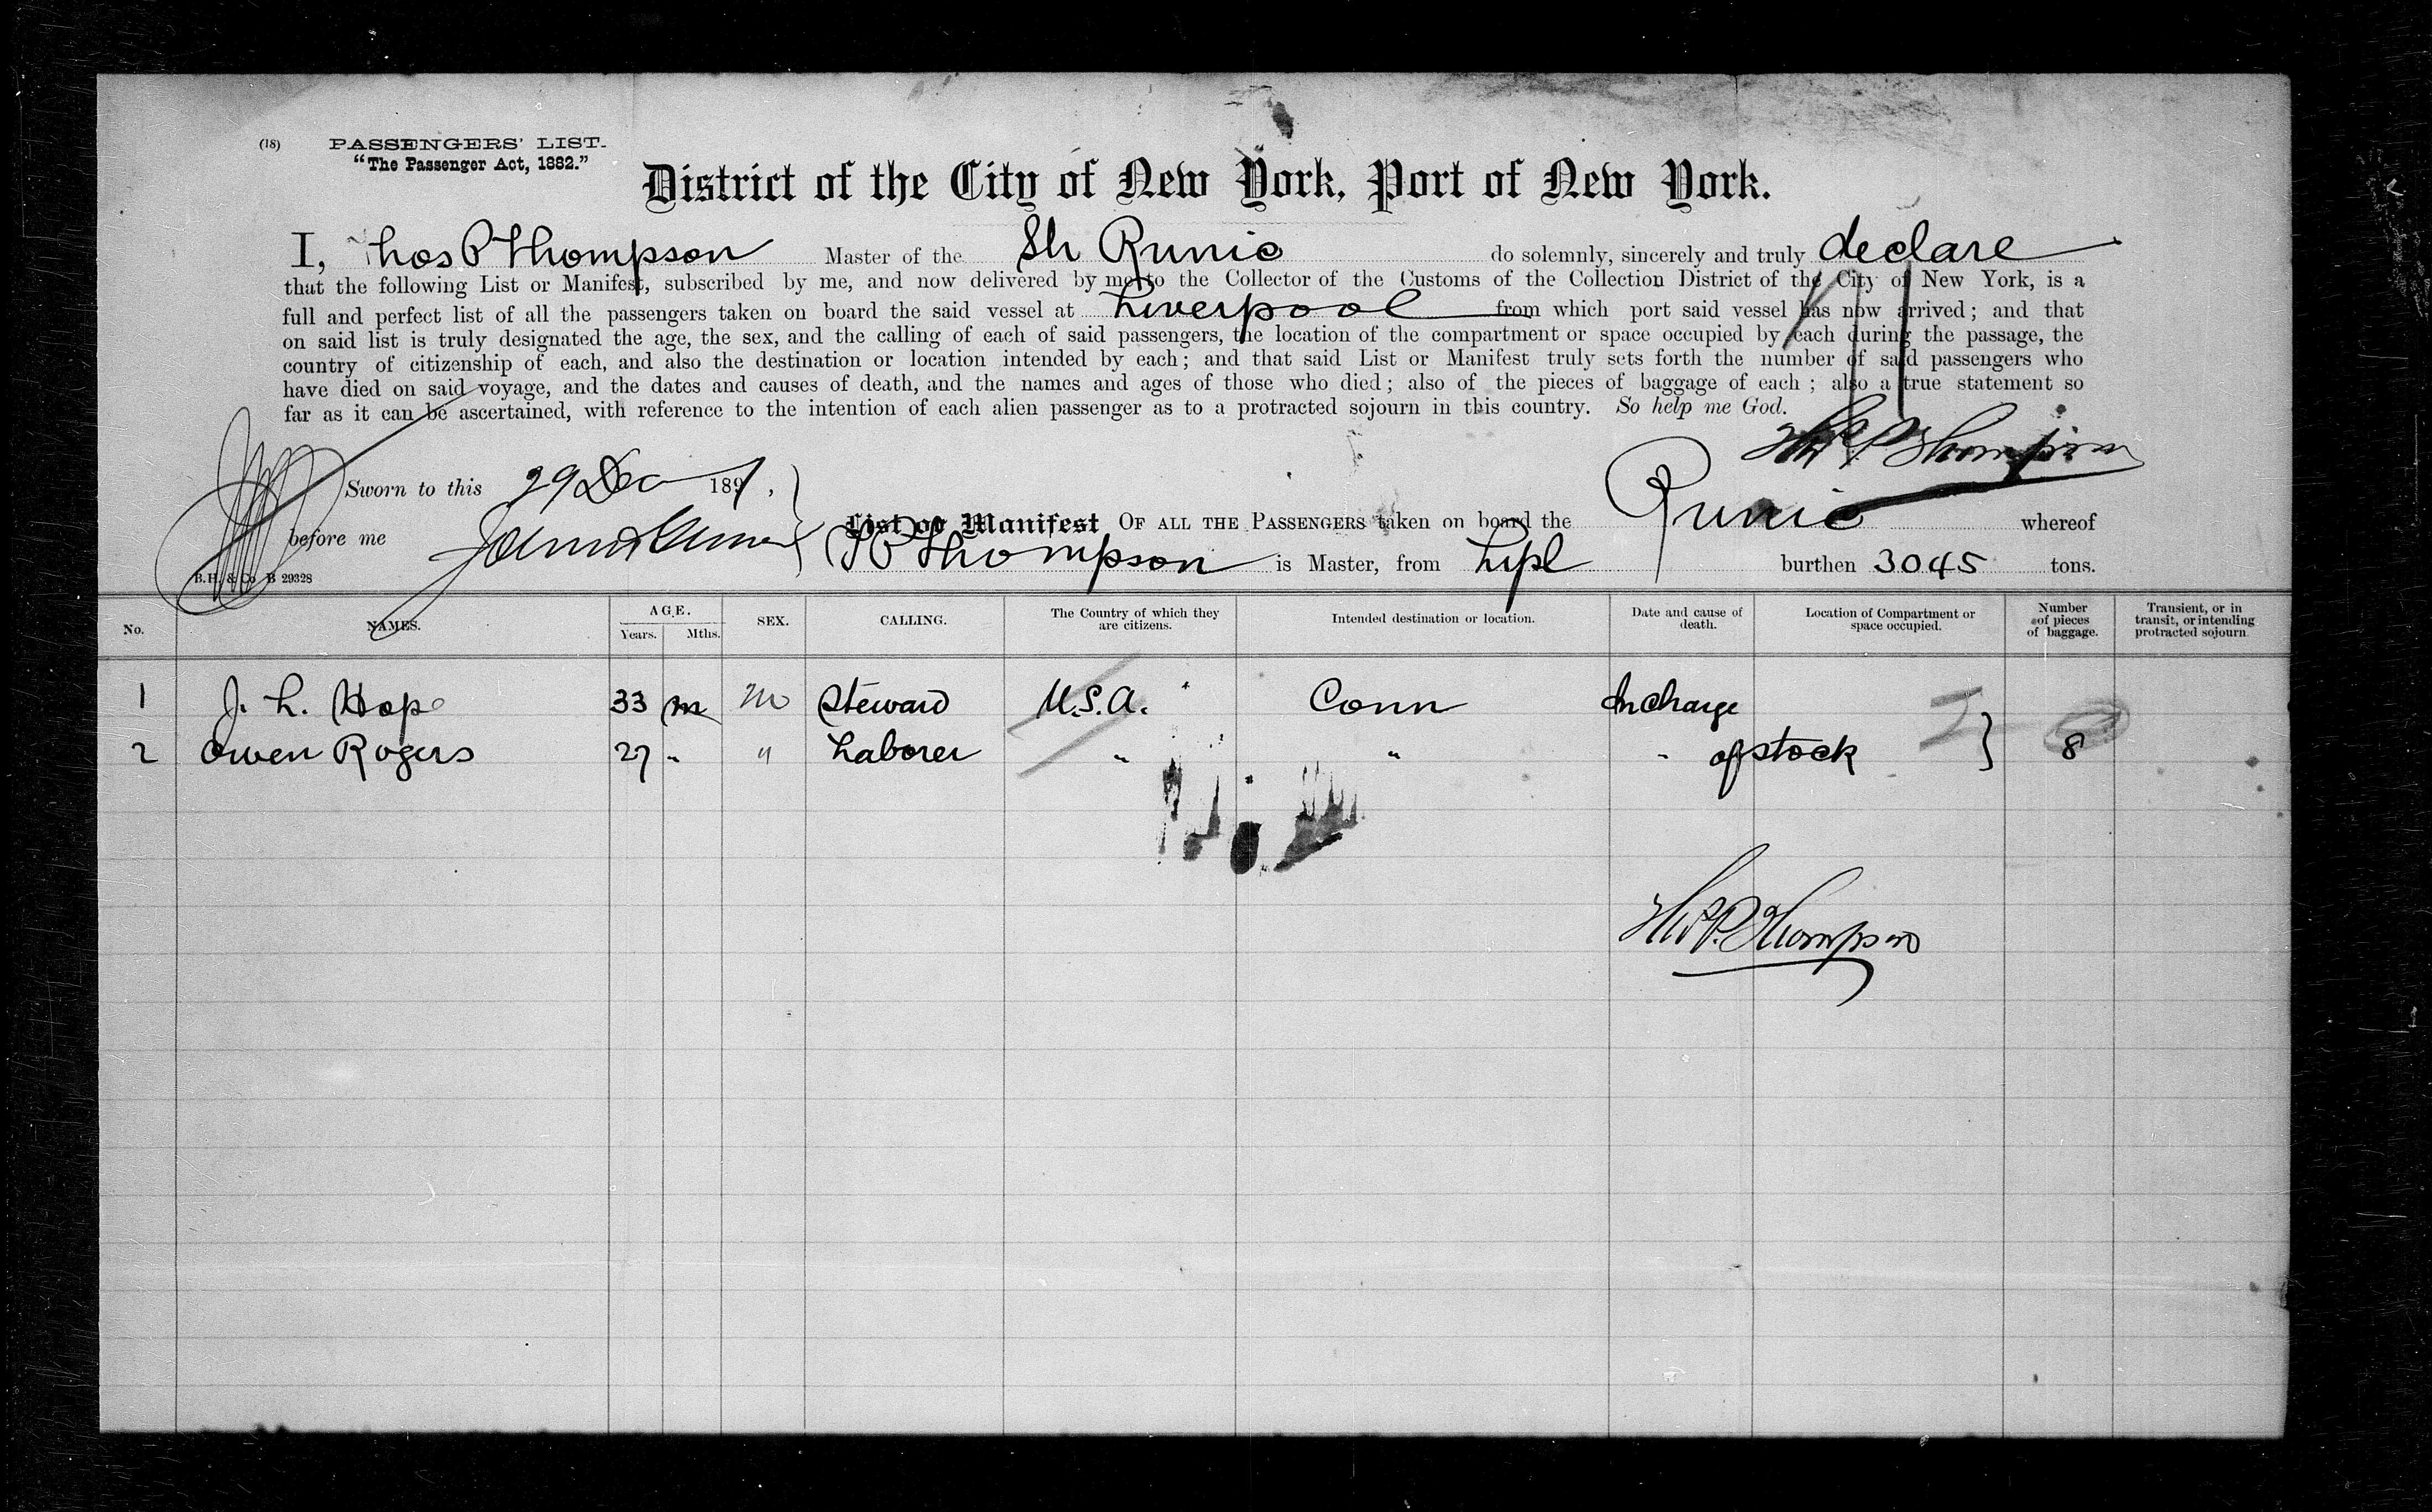 (18) PASSENGERS' LIST.
"The Passenger Act, 1882."
District of the City of New York, Port of New York.
I, Thos P Thompson Master of the Sh Runic do solemnly, sincerely and truly declare
that the following List or Manifest, subscribed by me, and now delivered by me to the Collector of the Customs of the Collection District of the City of New York, is a
full and perfect list of all the passengers taken on board the said vessel at Liverpool from which port said vessel has now arrived; and that
on said list is truly designated the age, the sex, and the calling of each of said passengers, the location of the compartment or space occupied by each during the passage, the
country of citizenship of each, and also the destination or location intended by each; and that said List or Manifest truly sets forth the number of said passengers who
have died on said voyage, and the dates and causes of death, and the names and ages of those who died; also of the pieces of baggage of each; also a true statement so
far as it can be ascertained, with reference to the intention of each alien passenger as to a protracted sojourn in this country. So help me God.
Thos P Thompson
Sworn to this 29 Dec 1891,
before me
List or Manifest OF ALL THE PASSENGERS taken on board the Runic whereof
T P Thompson is Master, from Lpl burthen 3045 tons.
B.H. & Co B 29328
No. NAMES. AGE. Years. Mths. SEX. CALLING. The Country of which they are citizens. Intended destination or location. Date and cause of death. Location of Compartment or space occupied. Number of pieces of baggage. Transient, or in transit, or intending protracted sojourn.
1 J. L. Hope 33 m m Steward U.S.A. Conn In charge
2 Owen Rogers 27 " " Laborer " " " of stock } 8
Thos P. Thompson